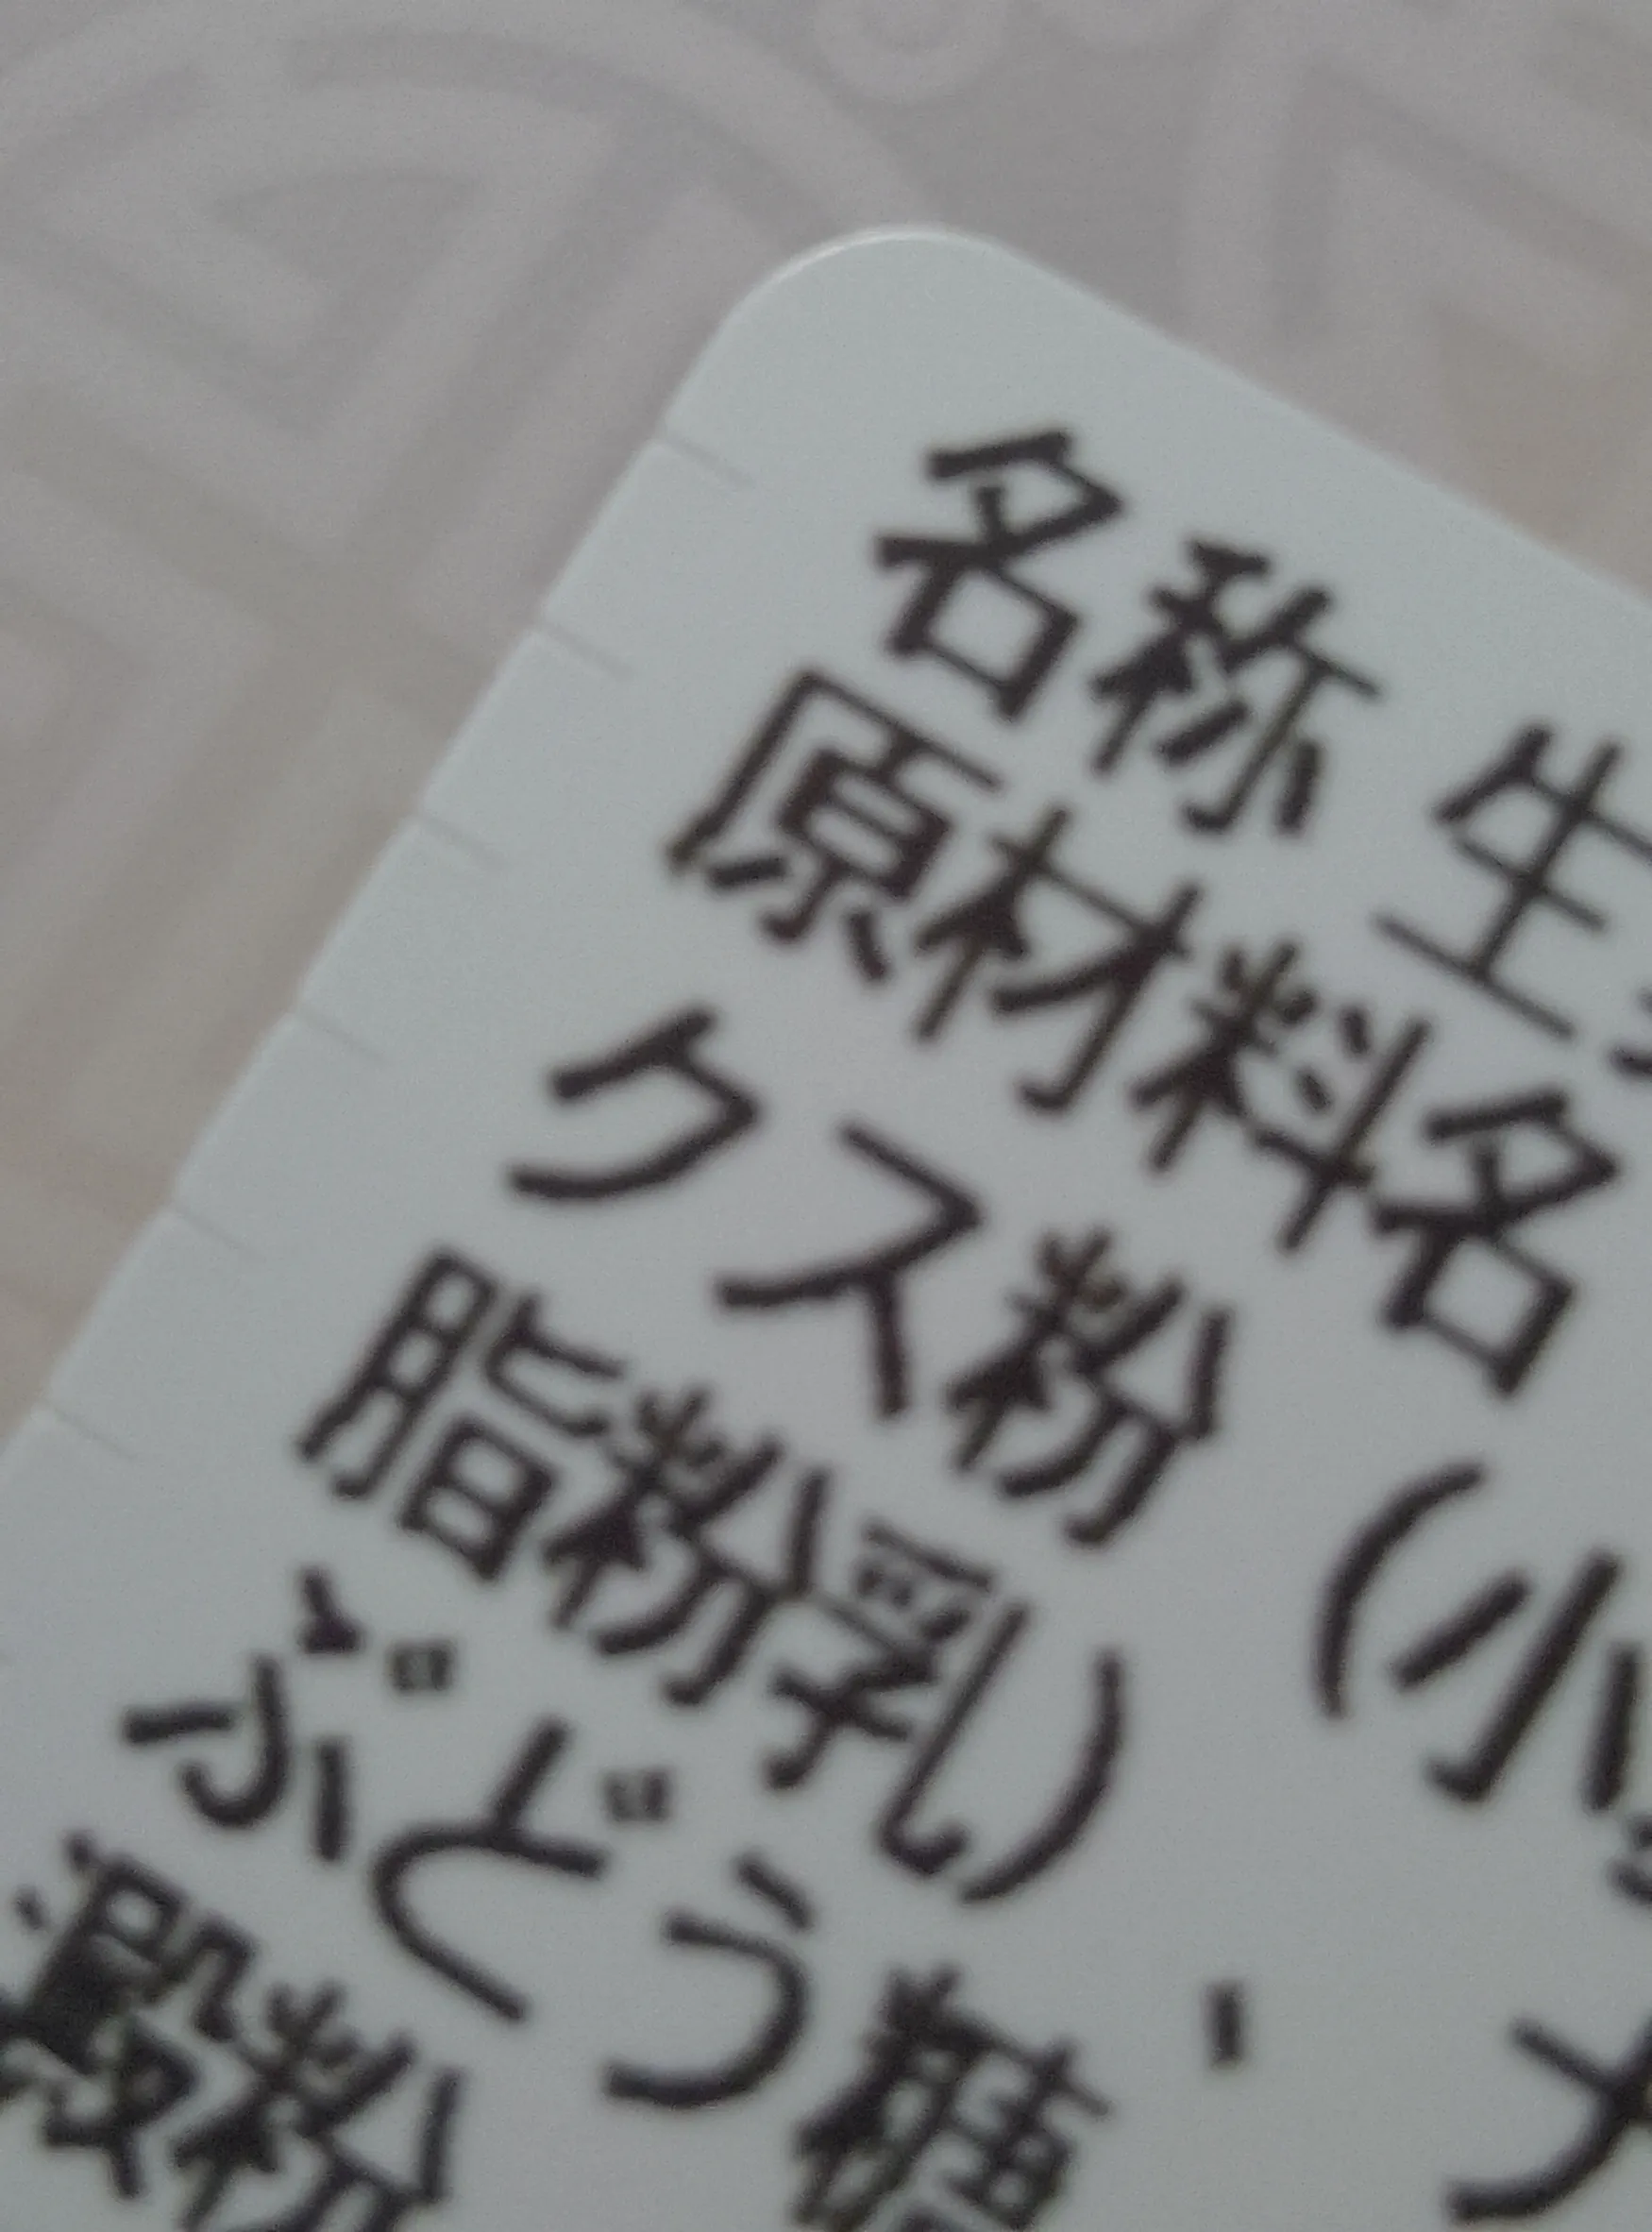 名称 生
原材料名
クス粉 (小
脂粉乳)
ぶどう糖、
澱粉